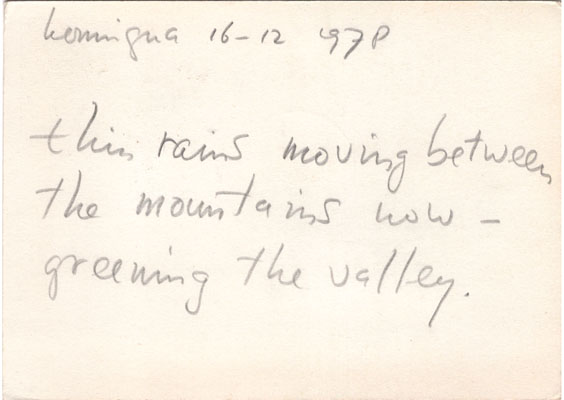 kominqua 16-12 1978
thin rains moving between
the mountains now –
greening the valley.